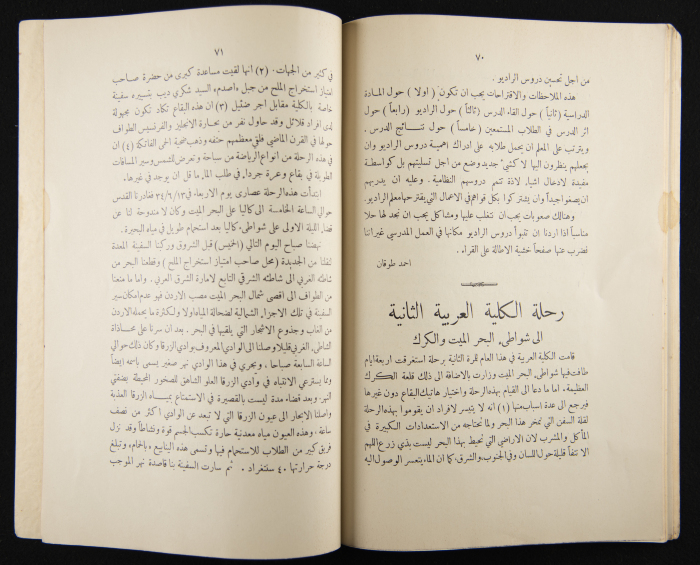 ٧٠
من اجل تحسين دروس الراديو .
هذه الملاحظات والاقتراحات يجب ان تكون ( اولا ) حول المادة
الدراسية (ثانياً ) حول القاء الدرس (ثالثاً ) حول الراديو (رابعاً ) حول
اثر الدرس في الطلاب المستمعين (خامساً ) حول نتائج الدرس .
ويترتب على المعلم ان يحمل طلابه على ادراك اهمية دروس الراديو وان
يجعلهم ينظرون اليها لا كشيء جديد وضع من اجل تسليتهم بل كواسطة
مفيدة لادخال اشياء لاذة تتمم دروسهم النظامية . وعليه ان يدربهم
ان يصغوا جيداً وان يشتركوا بكل قواهم في الاعمال التي يقترحها معلم الراديو.
وهنالك صعوبات يجب ان نتغلب عليها ومشاكل يجب ان نجد لها حلا
مناسباً اذا اردنا ان تتبوأ دروس الراديو مكانها في العمل المدرسي غير اننا
نضرب عنها صفحاً خشية الاطالة على القراء .
احمد طوقان
رحلة الكلية العربية الثانية
الى شواطيء البحر الميت والكرك
قامت الكلية العربية في هذا العام للمرة الثانية برحلة استغرقت اربعة ايام
طافت فيها شواطيء البحر الميت وزارت بالاضافة الى ذلك قلعة الكرك
العظيمة . اما ما دعا الى القيام بهذه الرحلة واختيار هاتيك البقاع دون غيرها
فيرجع الى عدة اسباب منها (١) انه لا يتيسر لافراد ان يقوموا بهذه الرحلة
لقلة السفن التي تمخر هذا البحر ولما تحتاجه من الاستعدادات الكبيرة في
المأكل والمشرب لان الاراضي التي تحيط بهذا البحر ليست بذي زرع اللهم
الا نتفاً قليلة حول اللسان وفي الجنوب، والشرق، كما ان الماء يتعسر الوصول اليه
٧١
في كثير من الجهات . (٢) انها لقيت مساعدة كبرى من حضرة صاحب
امتياز استخراج الملح من جبل «اصدم» السيد شكري ديب بتسييره سفينة
خاصة بالكلية مقابل اجر ضئيل (٣) ان هذه البقاع تكاد تكون مجهولة
لدى افراد قلائل وقد حاول نفر من بحارة الانجليز والفرنسيس الطواف
حولها في القرن الماضي فلقي معظمهم حتفه وذهب ضحية الحمى الفاتكة (٤) ان
في هذه الرحلة من انواع الرياضة من سباحة وتعرض لشمس وسير المسافات
الطويلة في بقاع وعرة جرداء في طلب الماء ما قل ان يوجد في غيرها.
ابتدأت هذه الرحلة عصاري يوم الاربعاء في ٣٤/٦/١٣ فغادرنا القدس
حوالي الساعة الخامسة الى كاليا على البحر الميت وكان لا مندوحة لنا عن
قضاء الليلة الاولى على شواطيء كاليا بعد استحمام طويل في مياه البحيرة .
نهضنا صباح اليوم التالي (الخميس) قبل الشروق وركبنا السفينة المعدة
لنقلنا من الجديدة (محل صاحب امتياز استخراج الملح ) وقطعنا البحر من
شاطئه الغربي الى شاطئه الشرقي التابع لامارة الشرق العربي . واما ما منعنا
من الطواف الى اقصى شمال البحر الميت مصب الاردن فهو عدم امكان سير
السفينة في تلك الاجزاء الشمالية لضحالة المياه اولا ولكثرة ما يحمله الاردن
من الغاب وجذوع الاشجار التي يلقيها في البحر . بعد ان سرنا على محاذاة
الشاطيء الغربي قليلا وصلنا الى الوادي المعروف بوادي الزرقا وكان ذلك حوالي
الساعة السابعة صباحا . ويجري في هذا الوادي نهر صغير يسمى باسمه ايضاً
ومما يسترعي الانتباه في وادي الزرقا العلو الشاهق للصخور المحيطة بضفتي
النهر . وبعد قضاء مدة ليست بالقصيرة في الاستمتاع بمياه الزرقا العذبة
واصلنا الابحار الى عيون الزرقا التي لا تبعد عن الوادي اكثر من نصف
ساعة ، وهذه العيون مياه معدنية حارة تكسب الجسم قوة ونشاطاً وقد نزل
فريق كبير من الطلاب للاستحمام فيها وتسمى هذه الينابيع «بالحمام» وتبلغ
درجة حرارتها ٤٠ سنتغراد . ثم سارت السفينة بنا قاصدة نهر الموجب